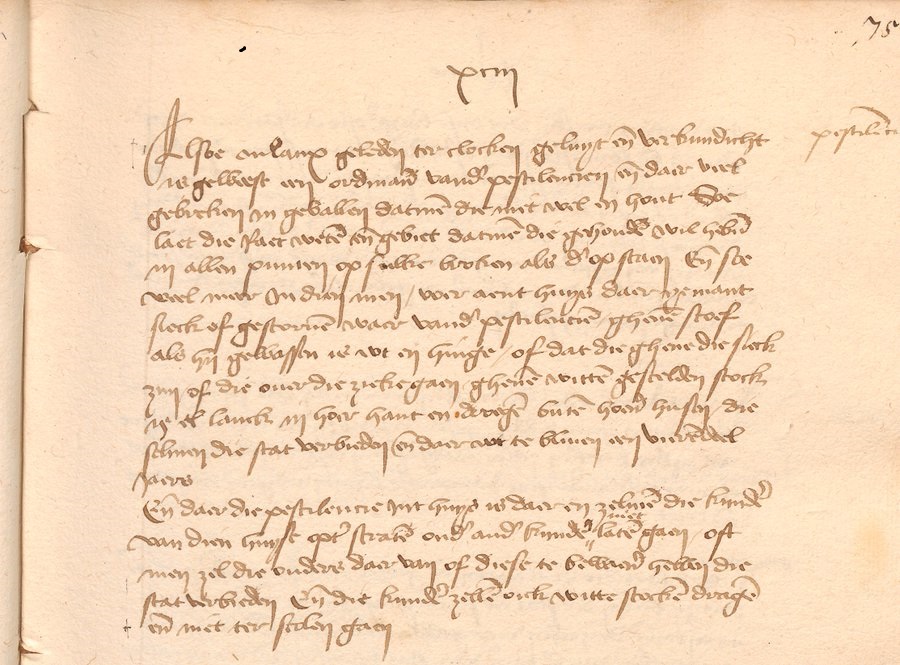 75
xciii
pestilenci
Alsoe onlanx geleden ter clocken geluyt en verkundicht
is geweest een ordinanc vand pestilencien en daer veel
gebreken in gevallen datmen die niet wel en hout Soe
laet die Raet weten en gebiet datmen die gehouden wil hebn
in allen punten op sulke broken als dr op staen En soe
veel meer In dien men / voer aent huys daer yemant
sieck of gestorven waer vand pestilencien / ghenen stoef
als hy gewassen is wt en hinge / of dat die ghene die sieck
zyn of die over die zieke gaen / ghenen witten gescelden stock
els lanck in hoer hant en droegen buten hoeren husen / die
selmen die stat verbieden en daer wt te bliven een vierendel
Jaers
En daer die pestilencie Int huys is daer en zelmen die kynder
van dien huyse opter straten onder ander kynder niet laten gaen / oft
men zel die ouders daer van of diese te bewaren hebben die
stat verbieden En die kynder zellen oick witte stocken dragen
en niet ter scolen gaen